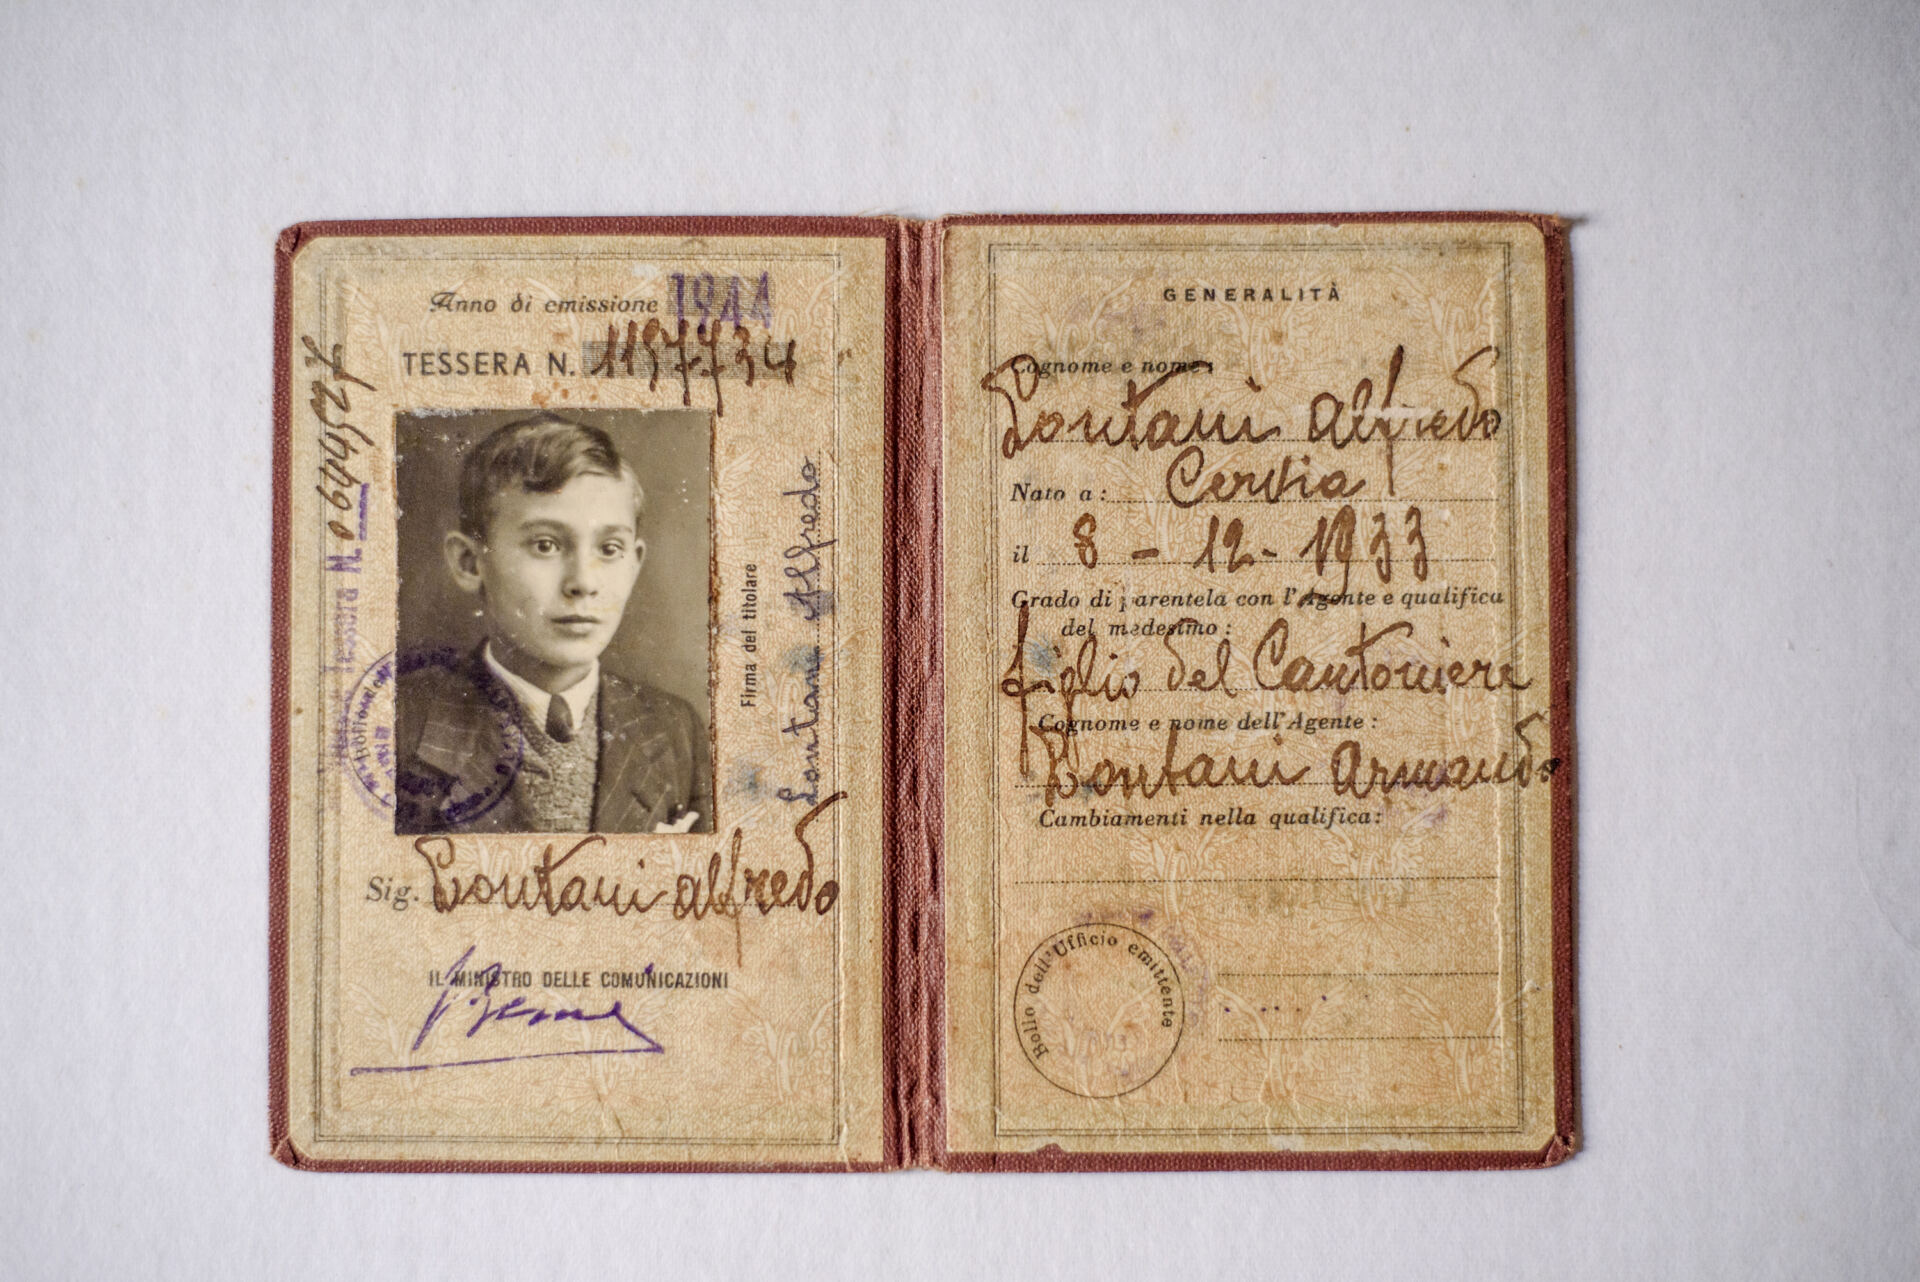 Anno di emissione 1944
TESSERA N. 1157734
Tessera N. 0644527
Firma del titolare
Lontani Alfredo
Sig. Lontani Alfredo
IL MINISTRO DELLE COMUNICAZIONI
GENERALITÀ
Cognome e nome:
Lontani Alfredo
Nato a: Cervia
il 8 - 12 - 1933
Grado di parentela con l'Agente e qualifica
del medesimo:
figlio del Cantoniere
Cognome e nome dell'Agente:
Lontani Armando
Cambiamenti nella qualifica:
Bollo dell'Ufficio emittente